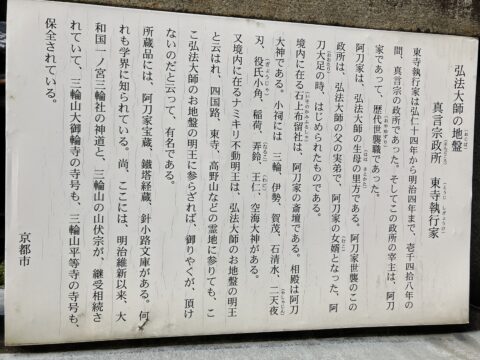 弘法大師の地盤
真言宗政所　東寺執行家
東寺執行家は弘仁十四年から明治四年まで、壱千四十八年の
間、真言宗の政所であった。そしてこの政所の宰主は、阿刀
家であって、歴代世襲職であった。
阿刀家は、弘法大師の生母の里方である。阿刀家世襲のこの
政所は、弘法大師の父の実弟で、阿刀家の女婿となった、阿
刀大足の時、はじめられたものである。
境内に在る石上布留社は、阿刀家の斎壇である。相殿は阿刀
大神である。小祠には、三輪、伊勢、賀茂、石清水、二天夜
刃、役氏小角、稲荷、弄鈴、王仁、空海大神がある。
又境内に在るナミキリ不動明王は、弘法大師のお地盤の明王
と云はれ、四国路、東寺、高野山などの霊地に参りても、こ
こ弘法大師のお地盤の明王に参らざれば、御りやくが、頂け
ないのだと云って、有名である。
所蔵品には、阿刀家宝蔵、鐵塔経蔵、針小路文庫がある。何
れも学界に知られている。尚、ここには、明治維新以来、大
和国一ノ宮三輪社の神道と、三輪山の山伏宗が、継受相続さ
れていて、三輪山大御輪寺の寺号も、三輪山平等寺の寺号も、
保全されている。
京都市